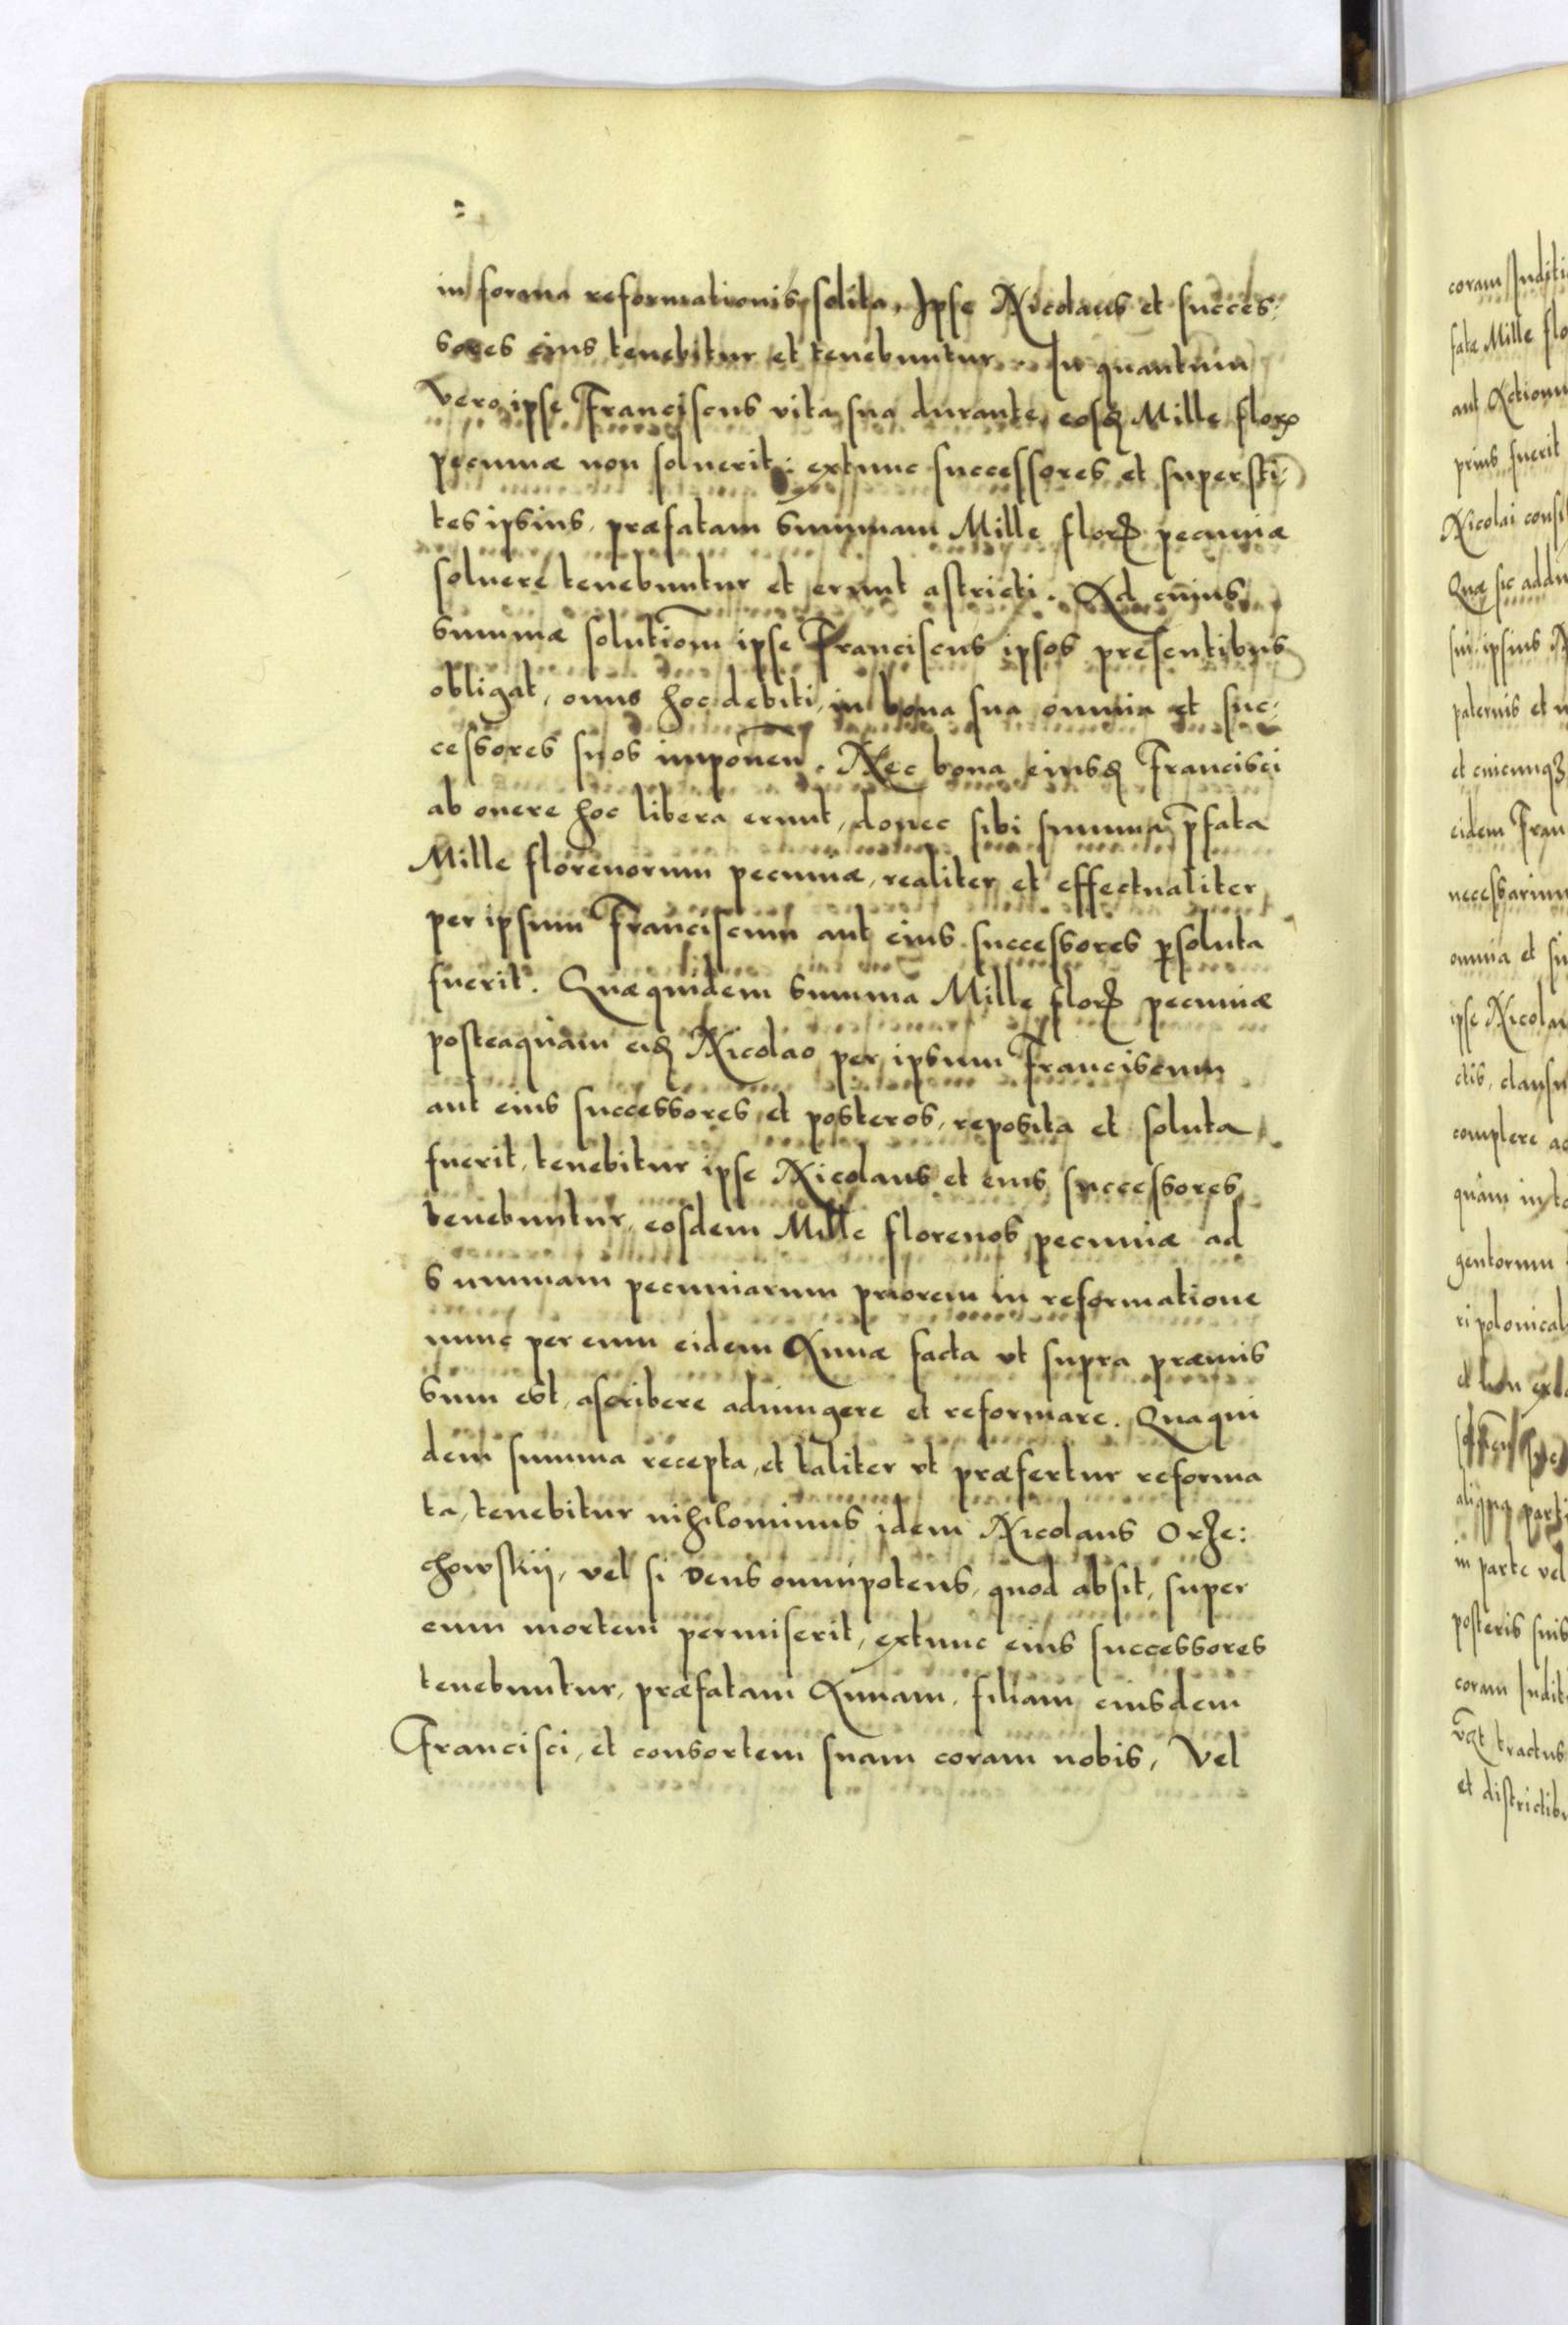 in forma reformationis solita, Ipse Nicolaus et succes:
sores eius tenebitur et tenebuntur. In quantum
vero ipse Franciscus vita sua durante, eosd Mille flor
pecuniæ non soluerit: extunc successores et supersti:
tes ipsius, præfatam summam Mille flor pecuniæ
soluere tenebuntur et erunt astricti. Ad cuius
summæ solutiom ipse Franciscus ipsos presentibus
obligat, onus hoc debiti, in bona sua omnia et suc:
cessores suos imponen. Nec bona eiusd Francisci
ab onere hoc libera erunt, donec sibi summa pfata
Mille florenorum pecuniæ, realiter et effectualiter
per ipsum Franciscum aut eius successores psoluta
fuerit. Quæquidem summa Mille flor pecuniæ
posteaquam eid Nicolao per ipsum Franciscum
aut eius successores et posteros, reposita et soluta
fuerit, tenebitur ipse Nicolaus et eius successores
tenebuntur, eosdem Mille florenos pecuniæ ad
summam pecuniarum priorem in reformatione
nunc per eum eidem Annæ facta ut supra præmis
sum est, ascribere adiungere et reformare. Quaqui
dem summa recepta, et taliter ut præfertur reforma
ta, tenebitur nihilominus idem Nicolaus Orze:
chowskij, vel si Deus omnipotens, quod absit, super
eum mortem permiserit, extunc eius successores
tenebuntur, præfatam Annam, filiam eiusdem
Francisci, et consortem suam coram nobis, Vel
coram
fatæ Mille
aut
prius fuerit
Nicolai
Quæ sic
sui ipsius
paternis et
eidem
omnia et
ipse
complere
quam
gentorum
in parte vel
posteris suis
coram
tractus
et